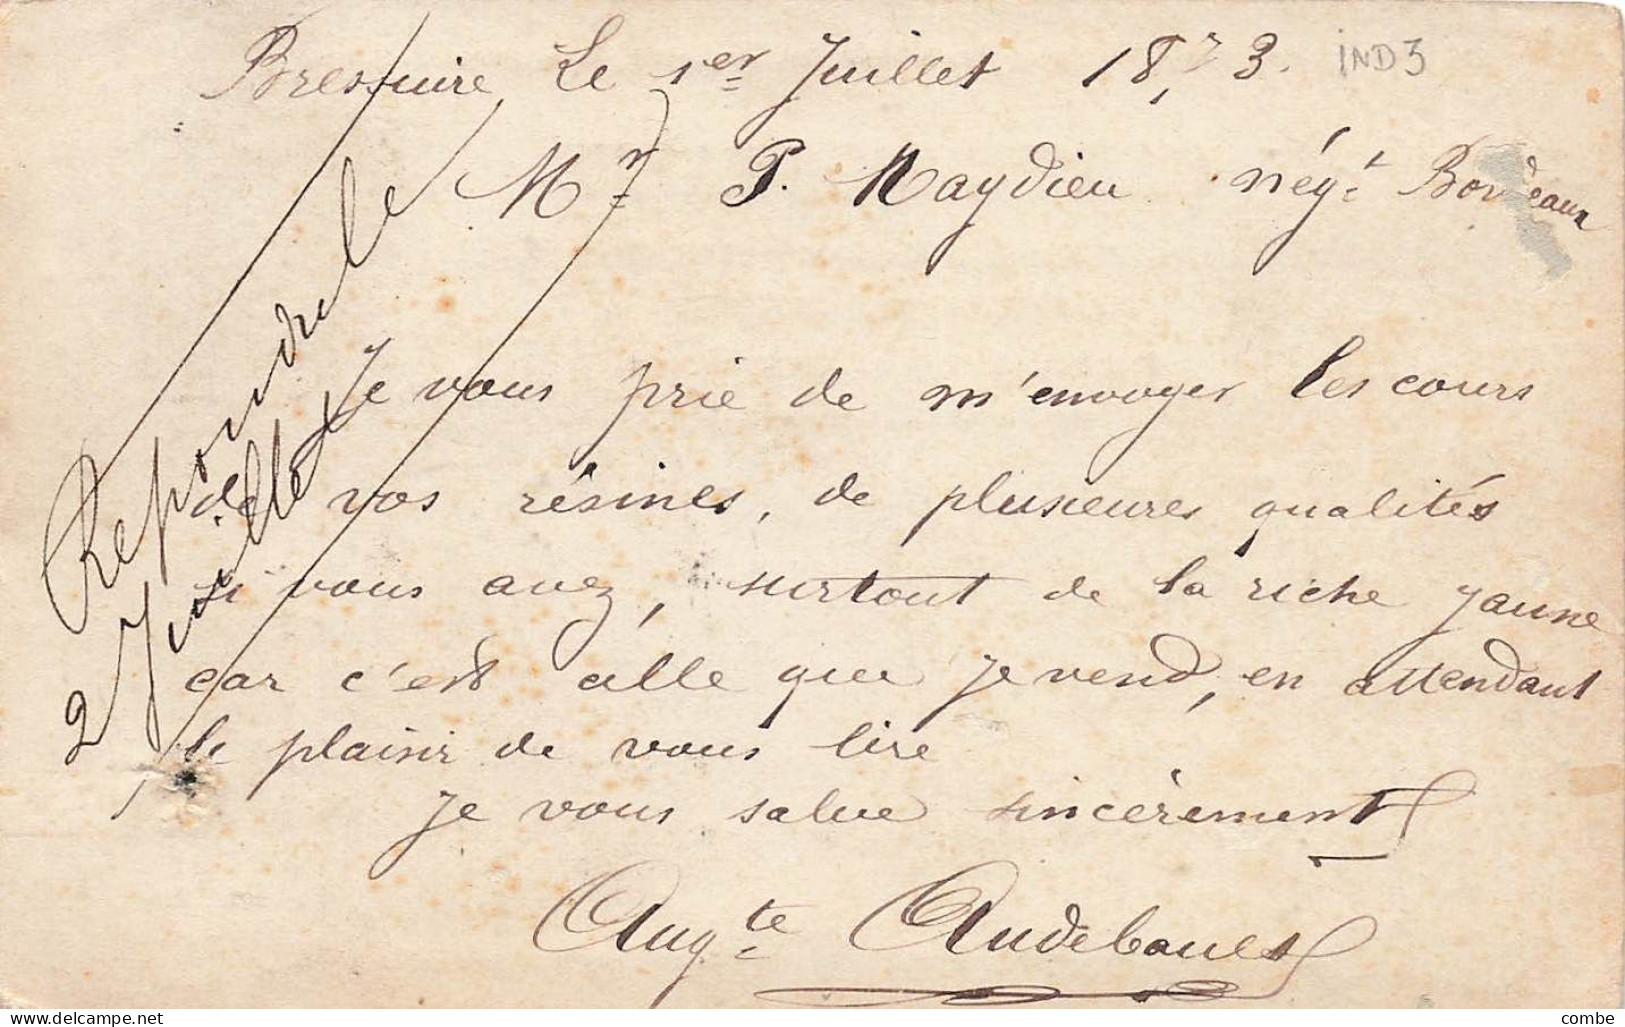 Bressuire, Le 1er Juillet 1873. IND 3
Mr P. Maydieu négt Bordeaux
Je vous prie de m'envoyer les cours
de vos résines, de plusieures qualités
si vous avez, surtout de la riche jaune
car c'est celle que je vend, en attendant
le plaisir de vous lire
Je vous salue sincèrement
Augte Audebouet
Repondu le
2 Juillet
delcampe.net
combe